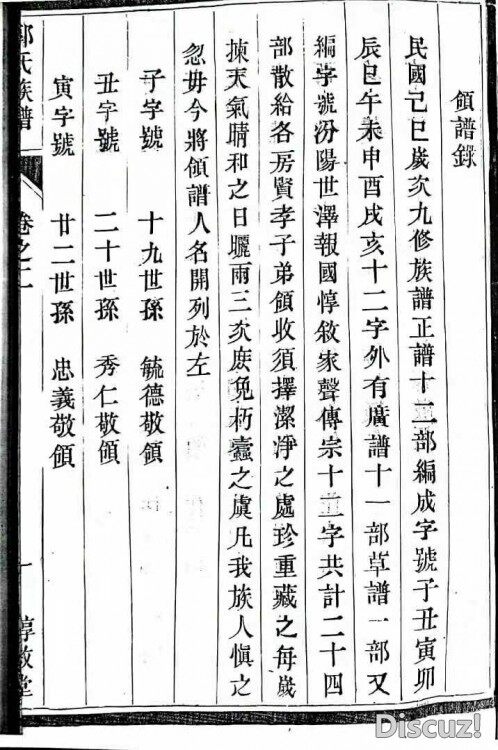 領譜錄
民國己巳歲次九修族譜正譜十二部編成字號子丑寅卯
辰巳午未申酉戌亥十二字外有廣譜十一部草譜一部又
編字號汾陽世澤報國惇敘家聲傳宗十二字共計二十四
部散給各房賢孝子弟領收須擇潔凈之處珍重藏之每歲
揀天氣晴和之日曬兩三次庶免朽蠹之虞凡我族人慎之
忽毋今將領譜人名開列於左
子字號 十九世孫 毓德敬領
丑字號 二十世孫 秀仁敬領
寅字號 廿二世孫 忠義敬領
郭氏族譜 卷之二 一 惇敘堂
Discuz!